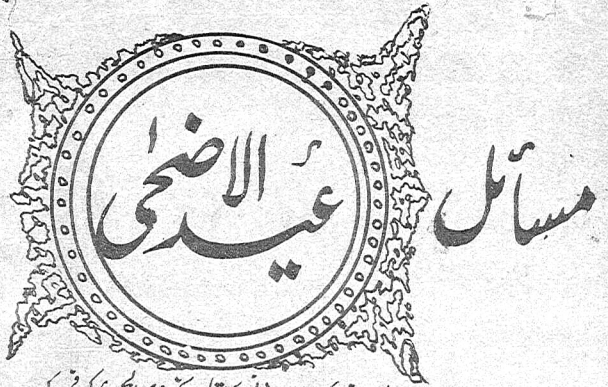 مسائل
عید الاضحٰی